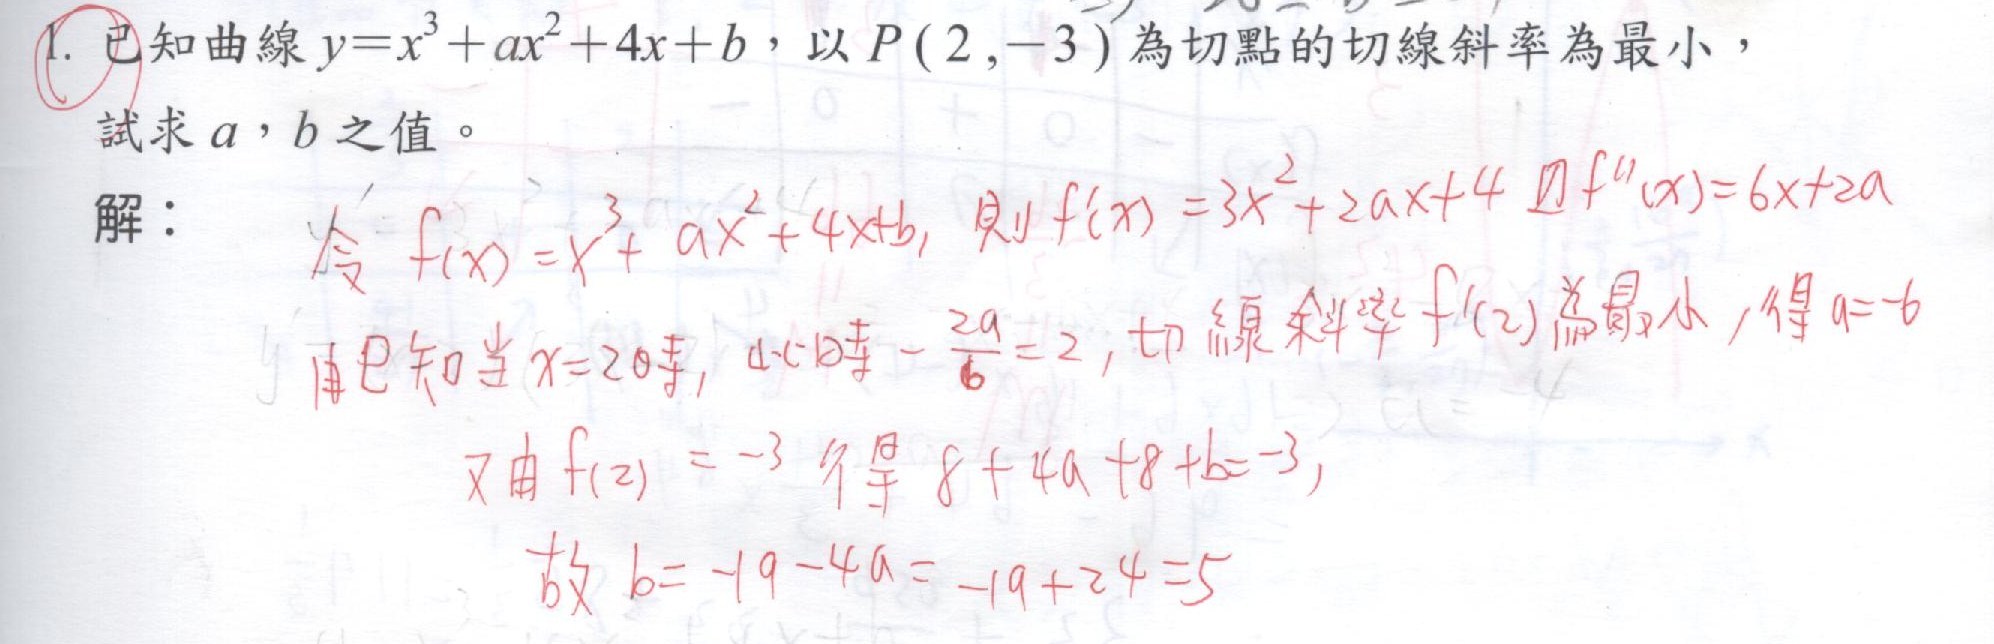 1. 已知曲線 y=x³+ax²+4x+b,以 P(2,-3) 為切點的切線斜率為最小,
試求 a,b 之值。
解:
令 f(x)=x³+ax²+4x+b, 則 f'(x)=3x²+2ax+4 且 f''(x)=6x+2a
由已知當 x=2時, 此時 -2a/6=2, 切線斜率 f'(2)為最小,得 a=-6
又由 f(2)=-3 得 8+4a+8+b=-3,
故 b=-19-4a=-19+24=5